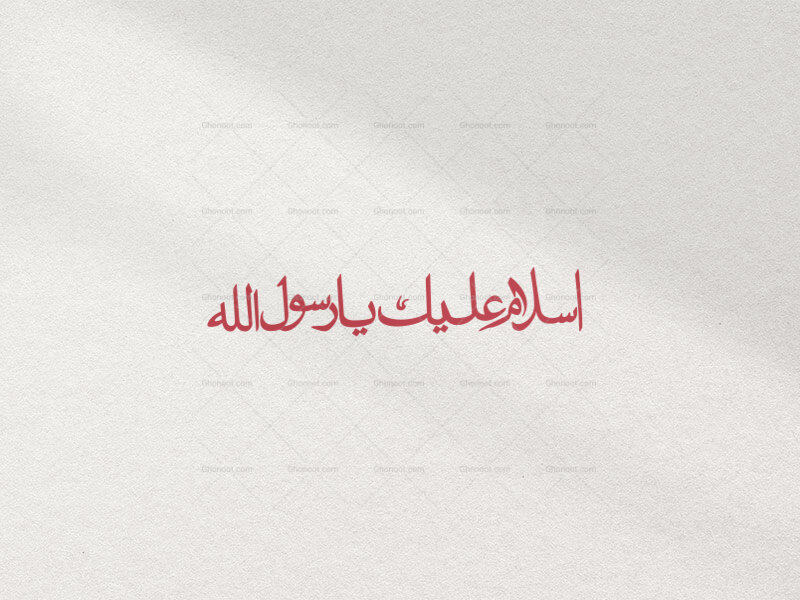 Ghonoot.com Ghonoot.com Ghonoot.com Ghonoot.com Ghonoot.com
Ghonoot.com Ghonoot.com Ghonoot.com Ghonoot.com Ghonoot.com
اسلام علیك یا رسول الله
Ghonoot.com Ghonoot.com Ghonoot.com Ghonoot.com Ghonoot.com
Ghonoot.com Ghonoot.com Ghonoot.com Ghonoot.com Ghonoot.com
Ghonoot.com Ghonoot.com Ghonoot.com Ghonoot.com Ghonoot.com